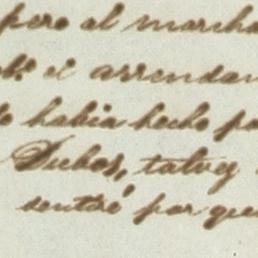 pero al marcha
el arrendan
había hecho po
Dubos, talvez
sentré por que